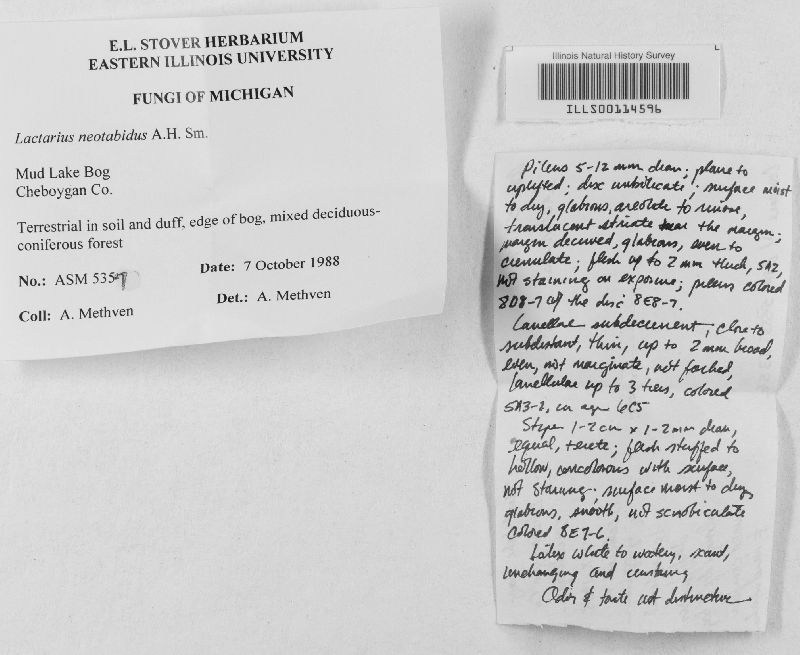 E.L. STOVER HERBARIUM
EASTERN ILLINOIS UNIVERSITY
FUNGI OF MICHIGAN
Lactarius neotabidus A.H. Sm.
Mud Lake Bog
Cheboygan Co.
Terrestrial in soil and duff, edge of bog, mixed deciduous-
coniferous forest
No.: ASM 5357
Date: 7 October 1988
Coll: A. Methven
Det.: A. Methven
Illinois Natural History Survey
ILLS00114596
Pileus 5-12 mm diam; plane to
uplifted; disc umbilicate; surface moist
to dry, glabrous, areolate to rimose,
translucent striate near the margin;
margin decurved, glabrous, even to
crenulate; flesh up to 2 mm thick, 5A2,
not staining on exposure; pileus colored
8D8-7 w/ the disc 8E8-7.
Lamellae subdecurrent, close to
subdistant, thin, up to 2 mm broad,
even, not marginate, not forked,
lamellulae up to 3 tiers, colored
5A3-2, in age 6C5
Stipe 1-2 cm x 1-2 mm diam,
equal, terete; flesh stuffed to
hollow, concolorous with surface,
not staining; surface moist to dry,
glabrous, smooth, not scrobiculate
colored 8E7-6.
Latex white to watery, scant,
unchanging and
Odor & taste not distinctive